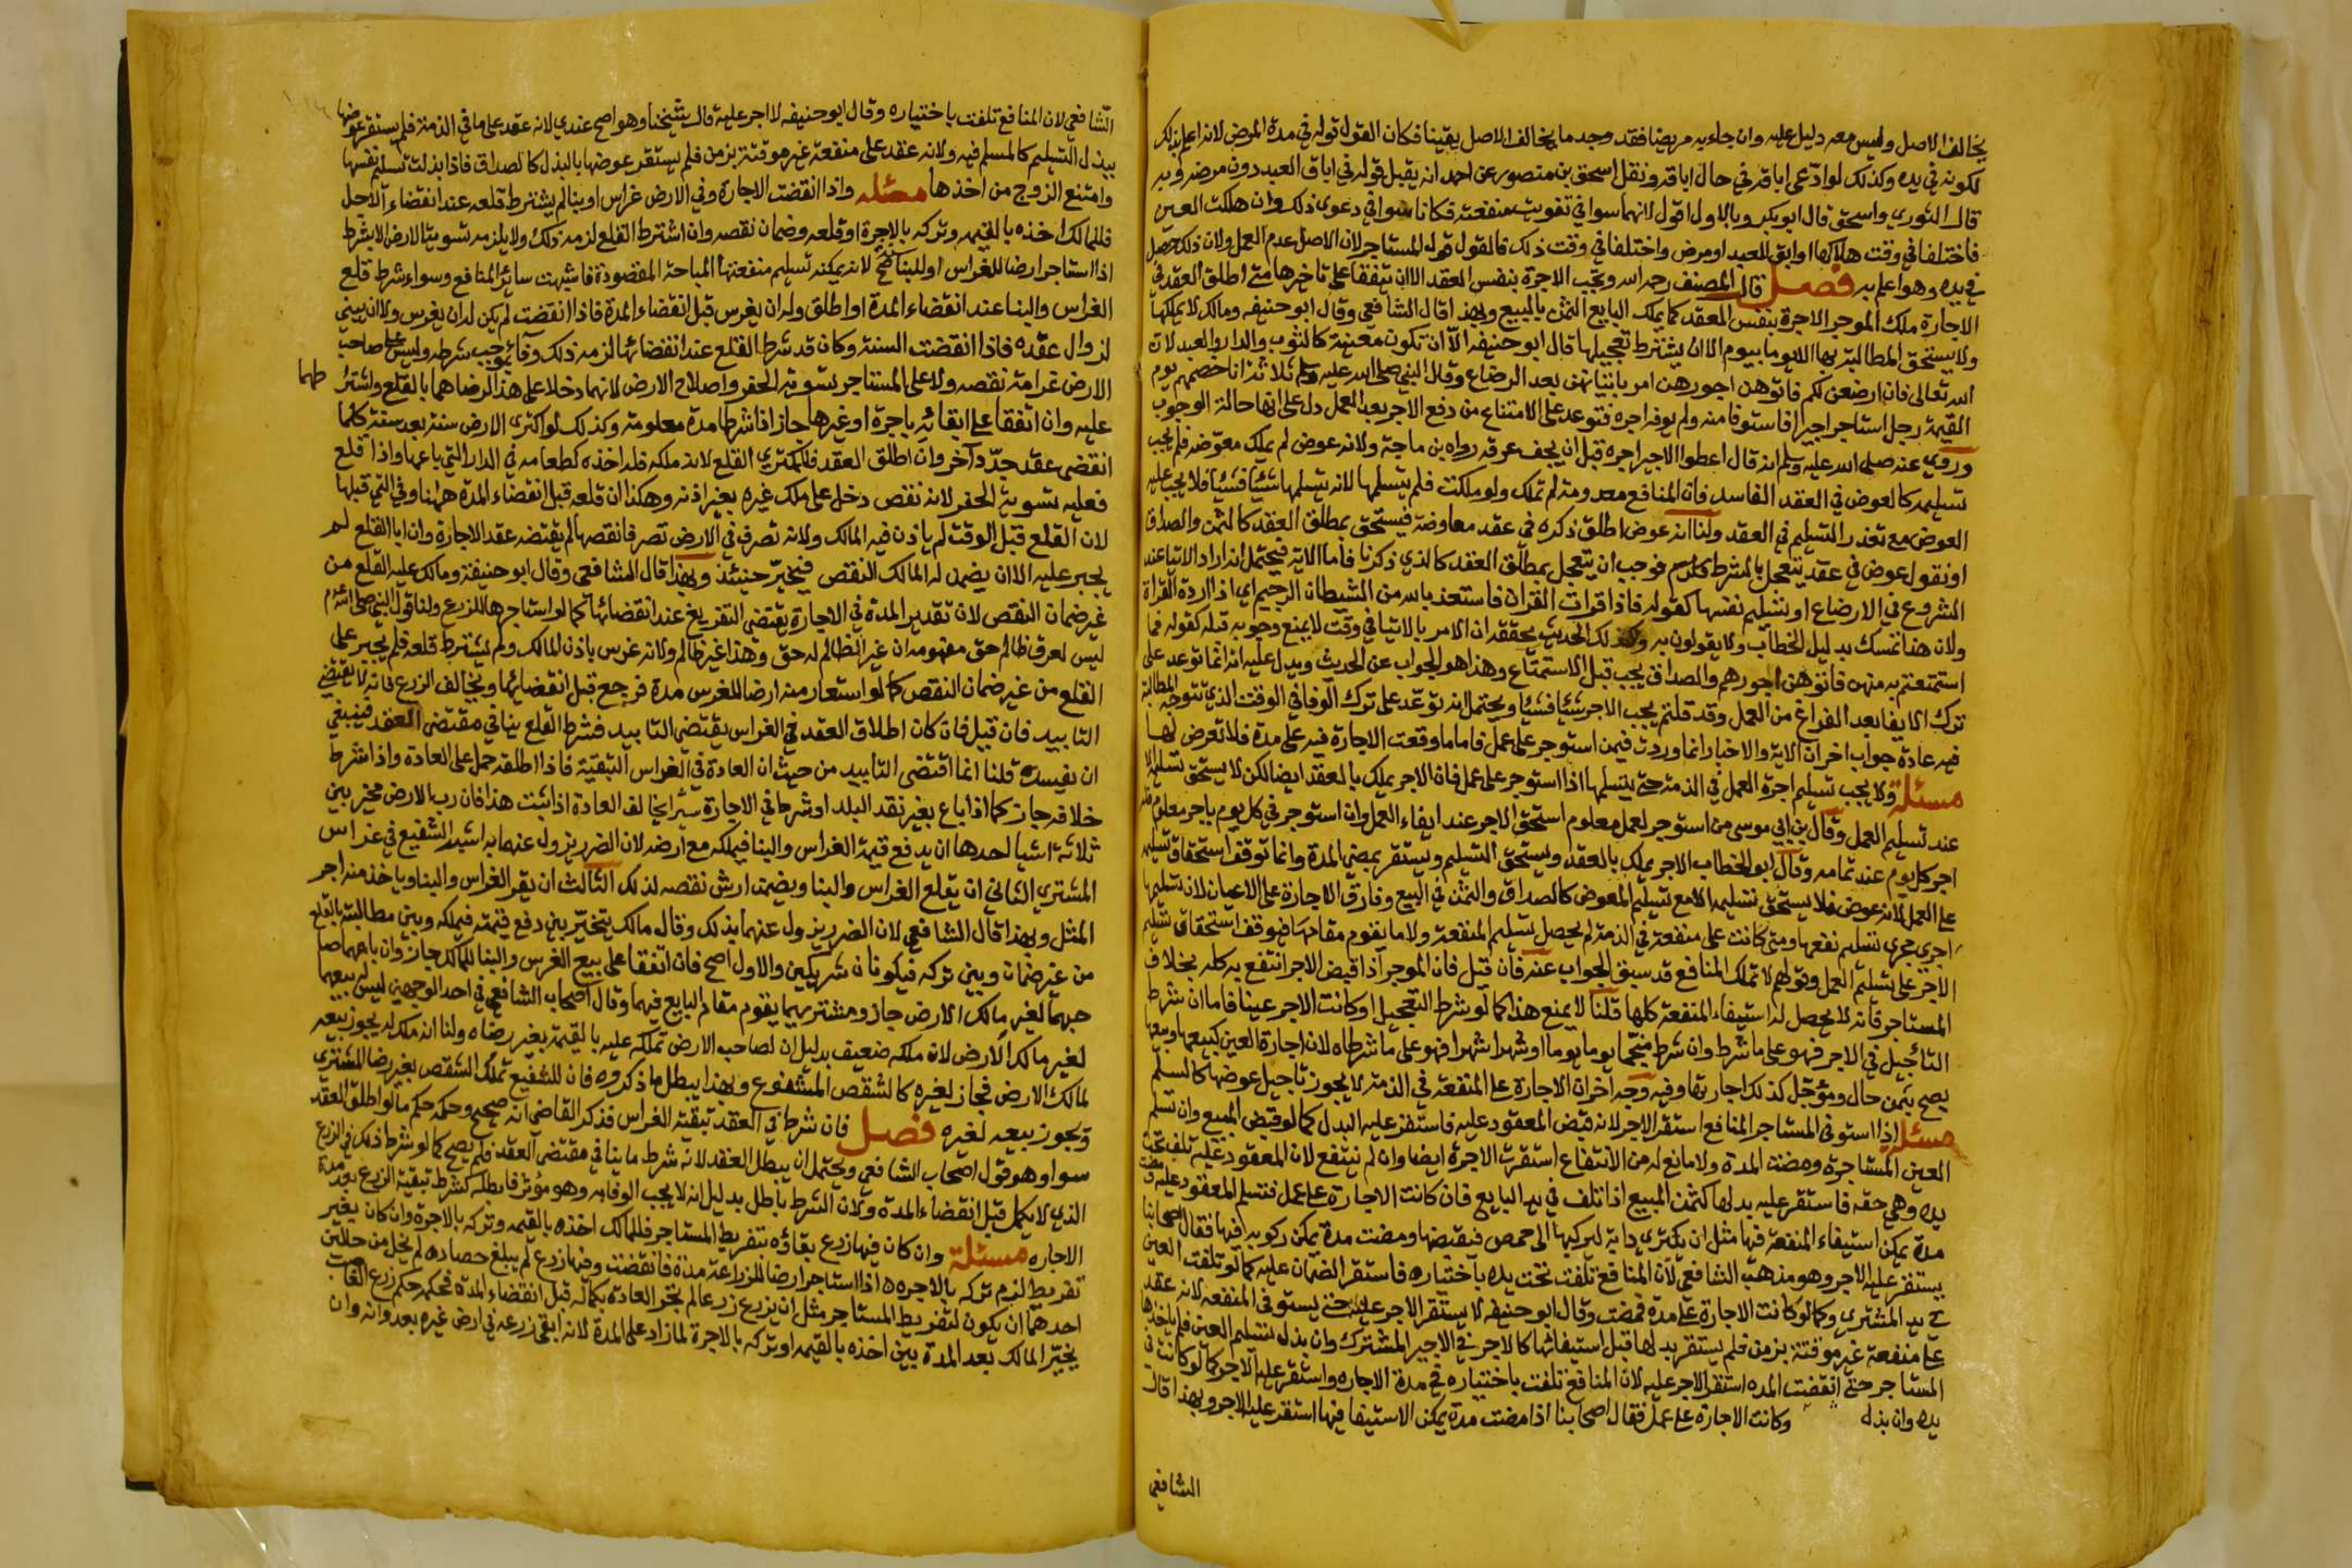 يخالف الاصل وليس معه دليل عليه وان جاء به مريضا فقد وجد ما يخالف الاصل يقينا فكان القول قوله في مدة المرض لانه اعلم بذلك
لكونه في يده وكذلك لو ادعى اباقه في حال اباقه ونقل اسحق بن منصور عن احمد انه يقبل قوله في اباق العبد دون مرضه وبه
قال الثوري واسحق قال ابو بكر وبالاول اقول لانهما سوا في تفويت منفعته فكانا سوا في دعوى ذلك وان هلكت العين
فاختلفا في وقت هلاكها او ابق العبد او مرض واختلفا في وقت ذلك فالقول قول المستاجر لان الاصل عدم العمل ولان ذلك حصل
في يده وهو اعلم به فصل قال المصنف رحمه الله وتجب الاجرة بنفس العقد الا ان يتفقا على تاخرها متى اطلق العقد في
الاجارة ملك الموجر الاجرة بنفس العقد كما يملك البايع الثمن بالمبيع وبهذا قال الشافعي وقال ابو حنيفه ومالك لا يملكها
ولا يستحق المطالبة بها الا يوما بيوم الا ان يشترط تعجيلها قال ابو حنيفه الا ان تكون معينة كالثوب والدار والعبد لان
الله تعالى قال فان ارضعن لكم فاتوهن اجورهن امر بايتائهن بعد الرضاع وقال النبي صلى الله عليه وسلم ثلاثة انا خصمهم يوم
القيمة رجل استاجر اجيرا فاستوفا منه ولم يوفه اجره فتوعد على الامتناع من دفع الاجر بعد العمل دل على انها حالة الوجوب
وروي عنه صلى الله عليه وسلم انه قال اعطوا الاجير اجره قبل ان يجف عرقه رواه بن ماجة ولانه عوض لم يملك معوضه فلم يجب
تسليمه كالعوض في العقد الفاسد فان المنافع معدومة لم تملك ولو ملكت فلم يتسلمها لانه يتسلمها شيئا فشيئا فلا يجب عليه
العوض مع تعذر التسليم في العقد ولنا انه عوض اطلق ذكره في عقد معاوضة فيستحق بمطلق العقد كالثمن والصداق
او نقول عوض في عقد يتعجل بالشرط فوجب ان يتعجل بمطلق العقد كالذي ذكرنا فاما الاية فيحتمل انه اراد الايتا عند
الشروع في الارضاع او تسليم نفسها كقوله فاذا قرات القران فاستعذ بالله من الشيطان الرجيم اي اذا اردت القراة
ولان هذا تمسك بدليل الخطاب ولا يقولون به وكذلك الحديث يحققه ان الامر بالايتا في وقت لا يمنع وجوبه قبله كقوله فما
استمتعتم به منهن فاتوهن اجورهم والصداق يجب قبل الاستمتاع وهذا هو الجواب عن الحديث ويدل عليه انه انما توعد على
ترك الايفا بعد الفراغ من العمل وقد قلتم يجب الاجر شيئا فشيئا ويحتمل انه توعد على ترك الوفا في الوقت الذي تتوجه المطالبة
فيه عادة جواب اخر ان الاية والاخبار انما وردت فيمن استوجر على عمل فاما ما وقعت الاجارة فيه على مدة فلا تعرض لها
مسئلة ولا يجب تسليم اجرة العمل في الذمة حتى يتسلمها اذا استوجر على عمل فان الاجر يملك بالعقد ايضا لكن لا يستحق تسليمه الا
عند تسليم العمل وقال بن ابي موسى من استوجر لعمل معلوم استحق الاجر عند ايفاء العمل وان استوجر في كل يوم باجر معلوم فله
اجر كل يوم عند تمامه وقال ابو الخطاب الاجر يملك بالعقد ويستحق التسليم ويستقر بمضي المدة وانما توقف استحقاق تسليمه
على العمل لانه عوض فلا يستحق تسليمه الا مع تسليم المعوض كالصداق والثمن في البيع وفارق الاجارة على الاعيان لان تسليمها
اجرى مجرى تسليم نفعها ومتى كانت على منفعة في الذمة لم يحصل تسليم المنفعة ولا ما يقوم مقامها فتوقف استحقاق تسليم
الاجر على تسليم العمل وقولهم لا تملك المنافع قد سبق الجواب عنه فان قيل فان الموجر اذا قبض الاجر انتفع به كله بخلاف
المستاجر فانه لا يحصل له استيفاء المنفعة كلها قلنا لا يمنع هذا كما لو شرط التعجيل او كانت الاجر عينا فاما ان شرط
التأجيل في الاجر فهو على ما شرط وان شرط منجما يوما يوما او شهرا شهرا فهو على ما شرطاه لان اجارة العين كبيعها وبيعها
يصح بثمن حال ومؤجل كذلك اجارتها وفيه وجه اخر ان الاجارة على المنفعة في الذمة لا يجوز تاجيل عوضها كالسلم
مسئلة اذا استوفى المستاجر المنافع استقر الاجر لانه قبض المعقود عليه فاستقر عليه البدل كما لو قبض المبيع وان تسلم
العين المستاجرة ومضت المدة ولا مانع له من الانتفاع استقرت الاجرة ايضا وان لم ينتفع لان المعقود عليه تلف تحت
يده وهي حقه فاستقر عليه بدلها كثمن المبيع اذا تلف في يد البايع فان كانت الاجارة على عمل فتسلم المعقود عليه
مدة يمكن استيفاء المنفعة فيها مثل ان يكتري دابة ليركبها الى حمص فقبضها ومضت مدة يمكن ركوبه فيها فقال اصحابنا
يستقر عليه الاجر وهو مذهب الشافعي لان المنافع تلفت تحت يده باختياره فاستقر الضمان عليه كما لو تلفت العين
في يد المشتري وكما لو كانت الاجارة على مدة فمضت وقال ابو حنيفه لا يستقر الاجر عليه حتى يستوفى المنفعه لانه عقد
على منفعة غير موقتة بزمن فلم يستقر بدلها قبل استيفائها كالاجر في الاجير المشترك وان بذل تسليم العين فلم ياخذها
المستاجر حتى انقضت المده استقر الاجر عليه لان المنافع تلفت باختياره في مدة الاجاره واستقر عليه الاجر كما لو كانت في
يده وان بذل وكانت الاجارة على عمل فقال اصحابنا اذا مضت مدة يمكن الاستيفا فيها استقر عليه الاجر وبهذا قال
الشافعي
الشافعي لان المنافع تلفت باختياره وقال ابو حنيفه لا اجر عليه قال شيخنا وهو اصح عندي لانه عقد على ما في الذمة فلم يستقر عوضها
ببذل التسليم كالمسلم فيه ولانه عقد على منفعة غير موقتة بزمن فلم يستقر عوضها بالبذل كالصداق فاذا بذلت تسليم نفسها
وامتنع الزوج من اخذها مسئله واذا انقضت الاجارة وفي الارض غراس او بنا لم يشترط قلعه عند انقضاء الاجل
فللمالك اخذه بالقيمه وتركه بالاجرة او قلعه وضمان نقصه وان اشترط القلع لزمه ذلك ولا يلزمه تسوية الارض الا بشرط
اذا استاجر ارضا للغراس او للبنا صح لانه يمكنه تسليم منفعتها المباحة المقصودة فاشبهت سائر المنافع وسواء شرط قلع
الغراس والبنا عند انقضاء المدة او اطلق وله ان يغرس قبل انقضاء المدة فاذا انقضت لم يكن له ان يغرس ولا ان يبني
لزوال عقده فاذا انقضت السنة وكان قد شرط القلع عند انقضائها لزمه ذلك وفاء بموجب شرطه وليس على صاحب
الارض غرامة نقصه ولا على المستاجر تسوية الحفر واصلاح الارض لانهما دخلا على هذا لرضاهما بالقلع واشترا طهما
عليه وان اتفقا على ابقائه باجرة او غيرها جاز اذا شرطا مدة معلومة وكذلك لو اكترى الارض سنة بعد سنة كلما
انقضى عقد جدد آخر وان اطلق العقد فللمكتري القلع لانه ملكه فله اخذه كطعامه في الدار التي باعها واذا قلع
فعليه تسوية الحفر لانه نقص دخل على ملك غيره بغير اذنه وهكذا ان قلعه قبل انقضاء المدة ههنا وفي التي قبلها
لان القلع قبل الوقت لم ياذن فيه المالك ولانه تصرف في الارض تصرفا نقصها لم يقتضه عقد الاجارة وان ابا القلع لم
يجبر عليه الا ان يضمن له المالك النقص فيجبر حينئذ وبهذا قال الشافعي وقال ابو حنيفة ومالك عليه القلع من
غير ضمان النقص لان تقدير المدة في الاجارة يقتضي التفريغ عند انقضائها كما لو استاجرها للزرع ولنا قول النبي صلى الله عليه وسلم
ليس لعرق ظالم حق مفهومه ان غير الظالم له حق وهذا غير ظالم ولانه غرس باذن المالك ولم يشترط قلعه فلم يجبر على
القلع من غير ضمان النقص كما لو استعار منه ارضا للغرس مدة فرجع قبل انقضائها ويخالف الزرع فانه لا يقتضي
التابيد فان قيل فان كان اطلاق العقد في الغراس يقتضي التابيد فشرط القلع ينافي مقتضى العقد فينبغي
ان يفسده قلنا انما اقتضى التأبيد من حيث ان العادة في الغراس التبقية فاذا اطلقه حمل على العادة واذا شرط
خلافه جاز كما اذا باع بغير نقد البلد او شرط في الاجارة سيرا يخالف العادة اذا ثبت هذا فان رب الارض مخير بين
ثلاثة اشيا احدها ان يدفع قيمة الغراس والبنا فيملكه مع ارضه لان الضرر يزول عنهما به اشبه الشفيع في غراس
المشتري الثاني ان يقلع الغراس والبنا ويضمن ارش نقصه لذلك الثالث ان يقر الغراس والبنا وياخذ منه اجر
المثل وبهذا قال الشافعي لان الضرر يزول عنهما بذلك وقال مالك يتخير بين دفع قيمته فيملكه وبين مطالبته بالقلع
من غير ضمان وبين تركه فيكونان شريكين والاول اصح فان اتفقا على بيع الغرس والبنا للمالك جاز وان باعهما صا
حبهما لغير مالك الارض جاز ومشتريهما يقوم مقام البايع فيهما وقال اصحاب الشافعي في احد الوجهين ليس له بيعهما
لغير مالك الارض لان ملكه ضعيف بدليل ان لصاحب الارض تملكه عليه بالقيمة بغير رضاه ولنا انه ملك له يجوز بيعه
لمالك الارض فجاز لغيره كالشقص المشفوع وبهذا يبطل ما ذكروه فان للشفيع تملك الشقص بغير رضا المشتري
ويجوز بيعه لغيره فصل فان شرط في العقد تبقية الغراس فذكر القاضي انه صحيح وحكمه حكم ما لو اطلق العقد
سوا وهو قول اصحاب الشافعي ويحتمل ان يبطل العقد لانه شرط ما ينافي مقتضى العقد فلم يصح كما لو شرط ذلك في الزرع
الذي لا يكمل قبل انقضاء المدة ولان الشرط باطل بدليل انه لا يجب الوفا به وهو مؤثر فابطله كشرط تبقية الزرع بعد مدة
الاجاره مسئلة وان كان فيها زرع بقاؤه بتفريط المستاجر فللمالك اخذه بالقيمه وتركه بالاجرة وان كان بغير
تفريط لزم تركه بالاجره اذا استاجر ارضا للزراعة مدة فانقضت وفيها زرع لم يبلغ حصاده لم يخل من حالين
احدهما ان يكون لتفريط المستاجر مثل ان يزرع زرعا لم تجر العادة بكماله قبل انقضاء المدة فحكمه حكم زرع الغاصب
يخير المالك بعد المدة بين اخذه بالقيمه او تركه بالاجرة لما زاد على المدة لانه ابقى زرعه في ارض غيره بعدوانه وان